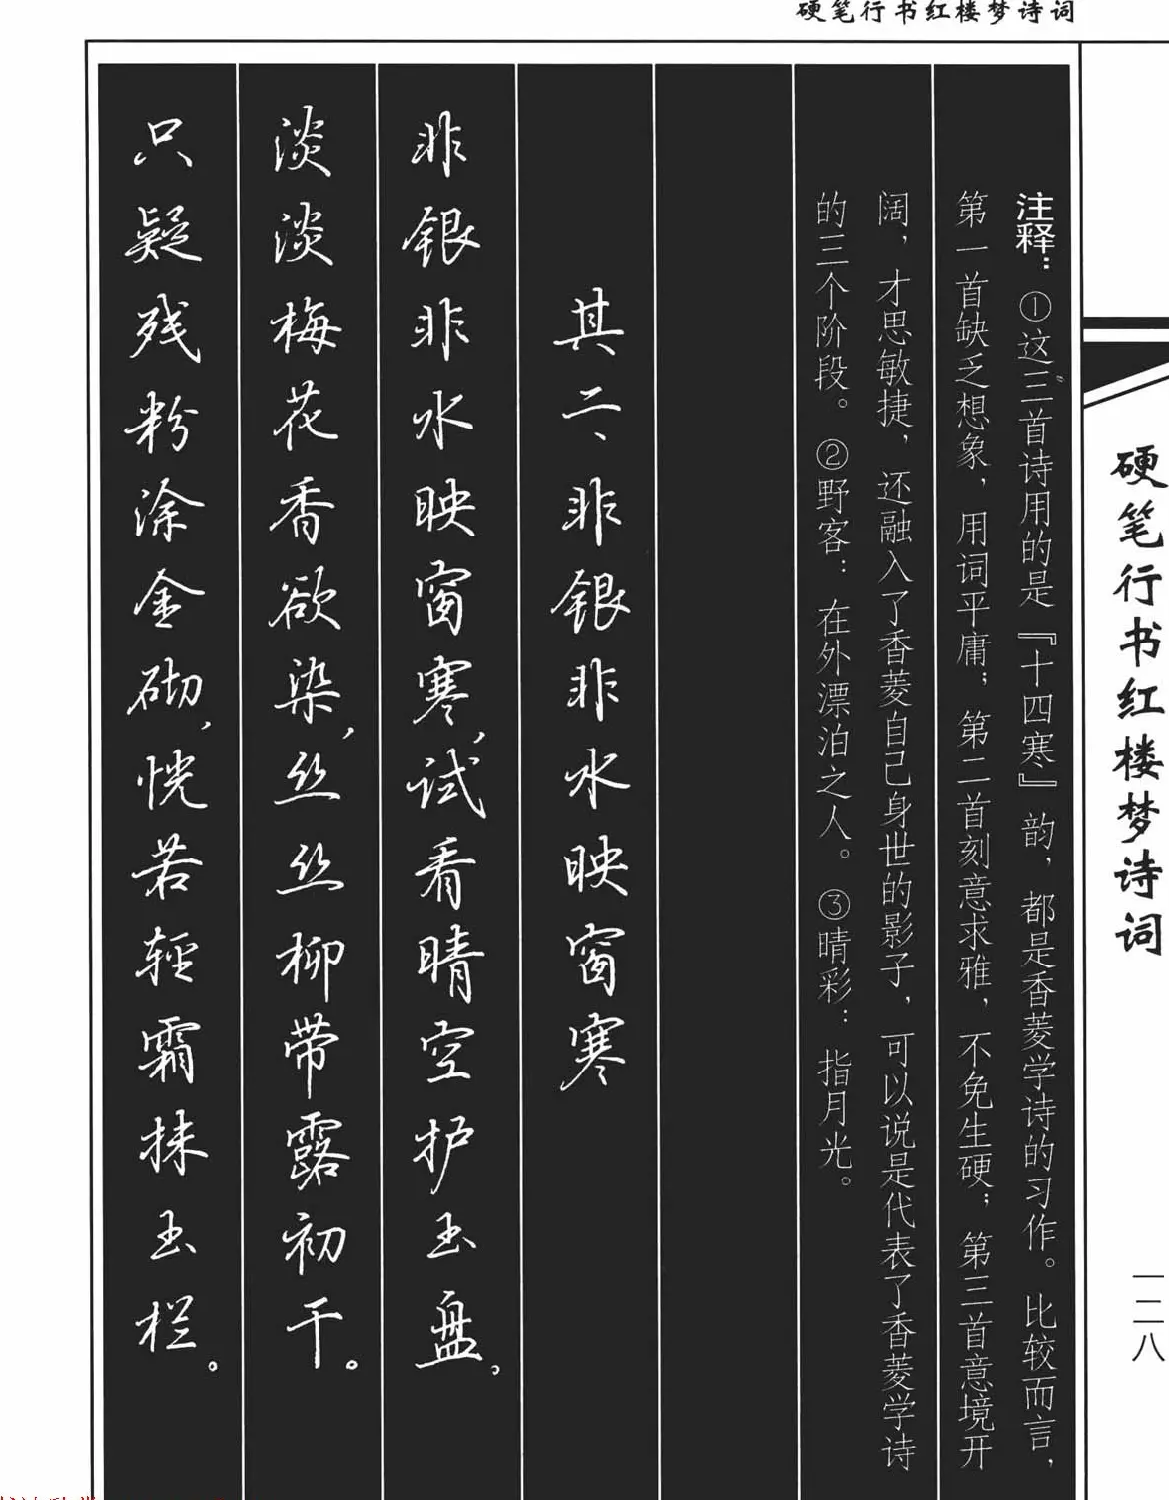 硬笔行书红楼梦诗词
硬笔行书红楼梦诗词
一二八
注释：①这三首诗用的是『十四寒』韵，都是香菱学诗的习作。比较而言，
第一首缺乏想象，用词平庸；第二首刻意求雅，不免生硬；第三首意境开
阔，才思敏捷，还融入了香菱自己身世的影子，可以说是代表了香菱学诗
的三个阶段。②野客：在外漂泊之人。③晴彩：指月光。
其二、非银非水映窗寒
非银非水映窗寒，试看晴空护玉盘。
淡淡梅花香欲染，丝丝柳带露初干。
只疑残粉涂金砌，恍若轻霜抹玉栏。